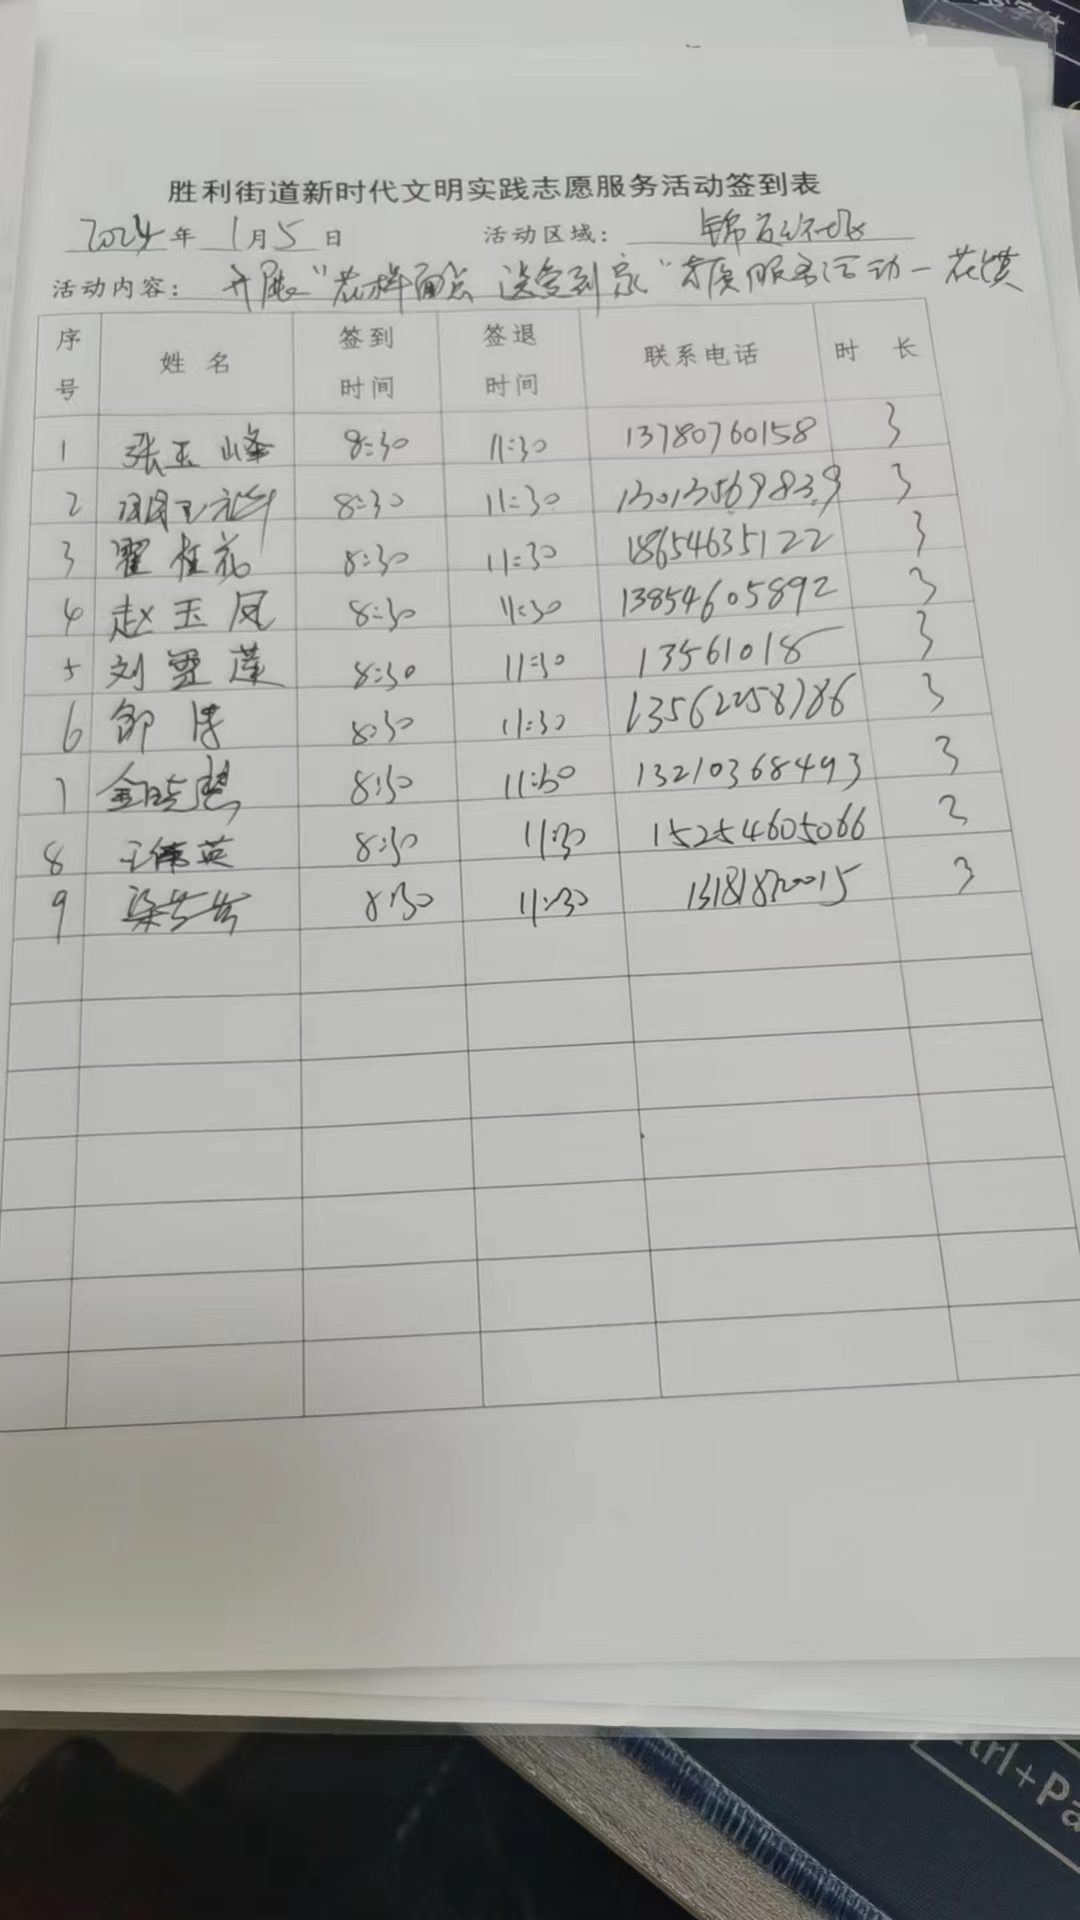 胜利街道新时代文明实践志愿服务活动签到表
2024年 1月5日 活动区域:
活动内容: 开展"花样面点 送爱到家"志愿服务活动—花馍
序号 姓名 签到时间 签退时间 联系电话 时 长
1 张玉峰 8:30 11:30 13780760158 3
2 8:30 11:30 13013569839 3
3 翟桂花 8:30 11:30 18654635122 3
4 赵玉凤 8:30 11:30 13854605892 3
5 刘雪莲 8:30 11:30 3
6 邹 8:30 11:30 13562258786 3
7 金晓慧 8:30 11:30 13210368493 3
8 王伟英 8:30 11:30 15254605066 3
9 梁 8:30 11:30 3
Ctrl+Pa